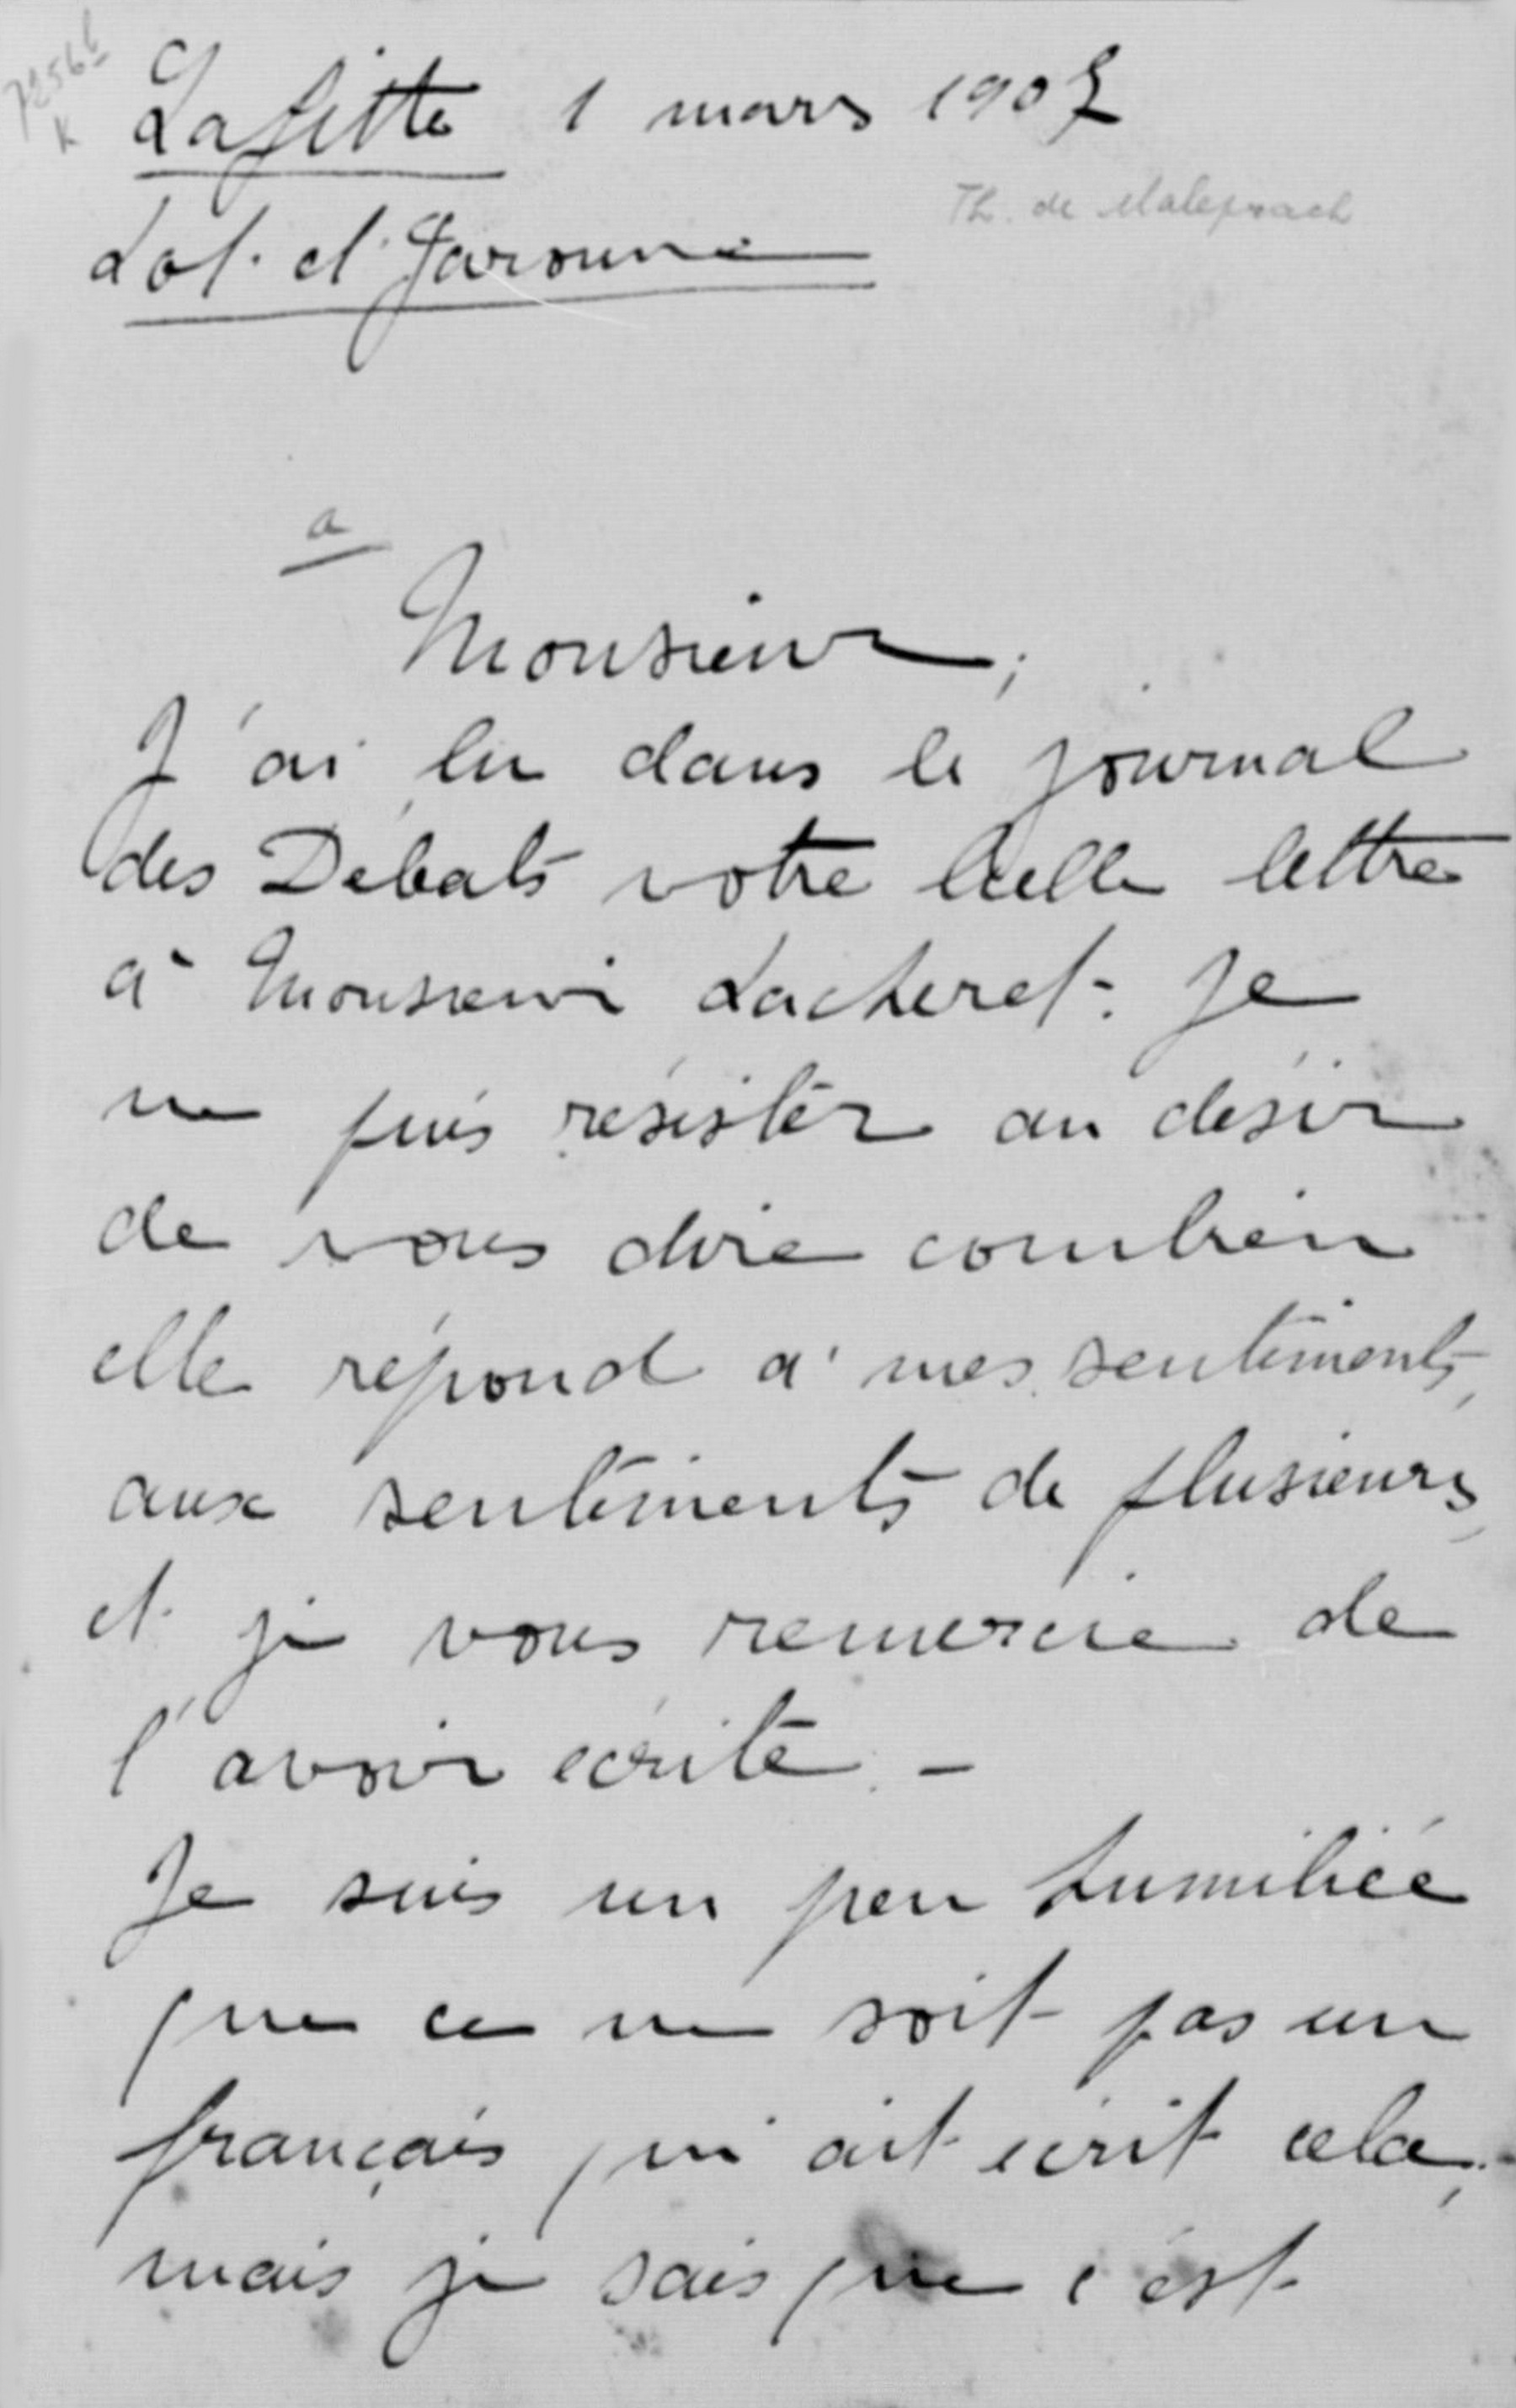 7256b
K
Lafitte 1 mars 1907
Th. de
Lot. et. Garonne
a
Monsieur,
J'ai lu dans le journal
des Débats votre belle lettre
à Monsieur Lacheret. Je
ne puis résister au désir
de vous dire combien
elle répond à mes sentiments,
aux sentiments de plusieurs,
et je vous remercie de
l'avoir écrite. –
Je suis un peu humiliée
que ce ne soit pas un
français qui ait écrit cela,
mais je sais que c'est